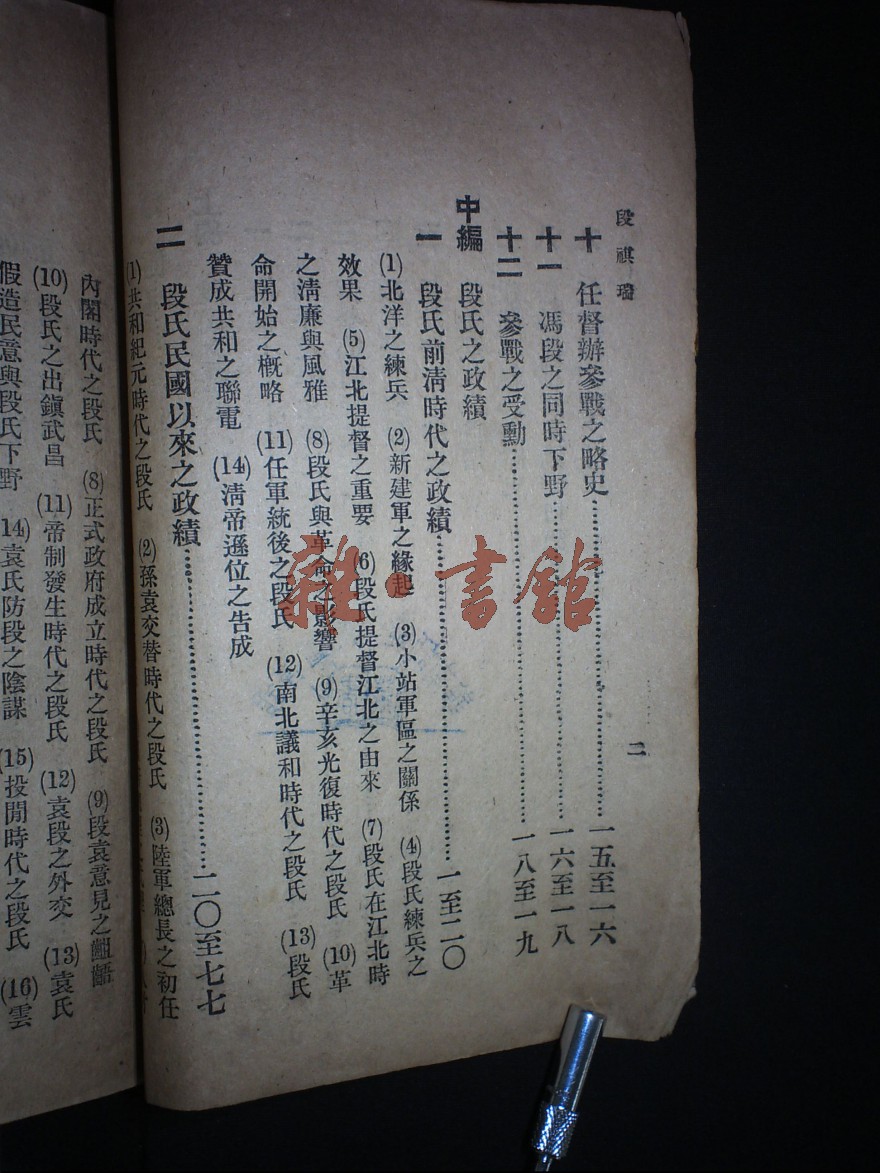 段祺瑞
二
十 任督辦參戰之略史 一五至一六
十一 馮段之同時下野 一六至一八
十二 參戰之受勳 一八至一九
中編 段氏之政績
一 段氏前清時代之政績 一至二〇
(1)北洋之練兵 (2)新建軍之緣起 (3)小站軍區之關係 (4)段氏練兵之
效果 (5)江北提督之重要 (6)段氏提督江北之由來 (7)段氏在江北時
之淸廉與風雅 (8)段氏與革命之影響 (9)辛亥光復時代之段氏 (10)革
命開始之概略 (11)任軍統後之段氏 (12)南北議和時代之段氏 (13)段氏
贊成共和之聯電 (14)淸帝遜位之告成
二 段氏民國以來之政績 二〇至七七
(1)共和紀元時代之段氏 (2)孫袁交替時代之段氏 (3)陸軍總長之初任
內閣時代之段氏 (8)正式政府成立時代之段氏 (9)段袁意見之齟齬
(10)段氏之出鎭武昌 (11)帝制發生時代之段氏 (12)袁段之外交 (13)袁氏
假造民意與段氏下野 (14)袁氏防段之陰謀 (15)投閒時代之段氏 (16)雲
雜·書館